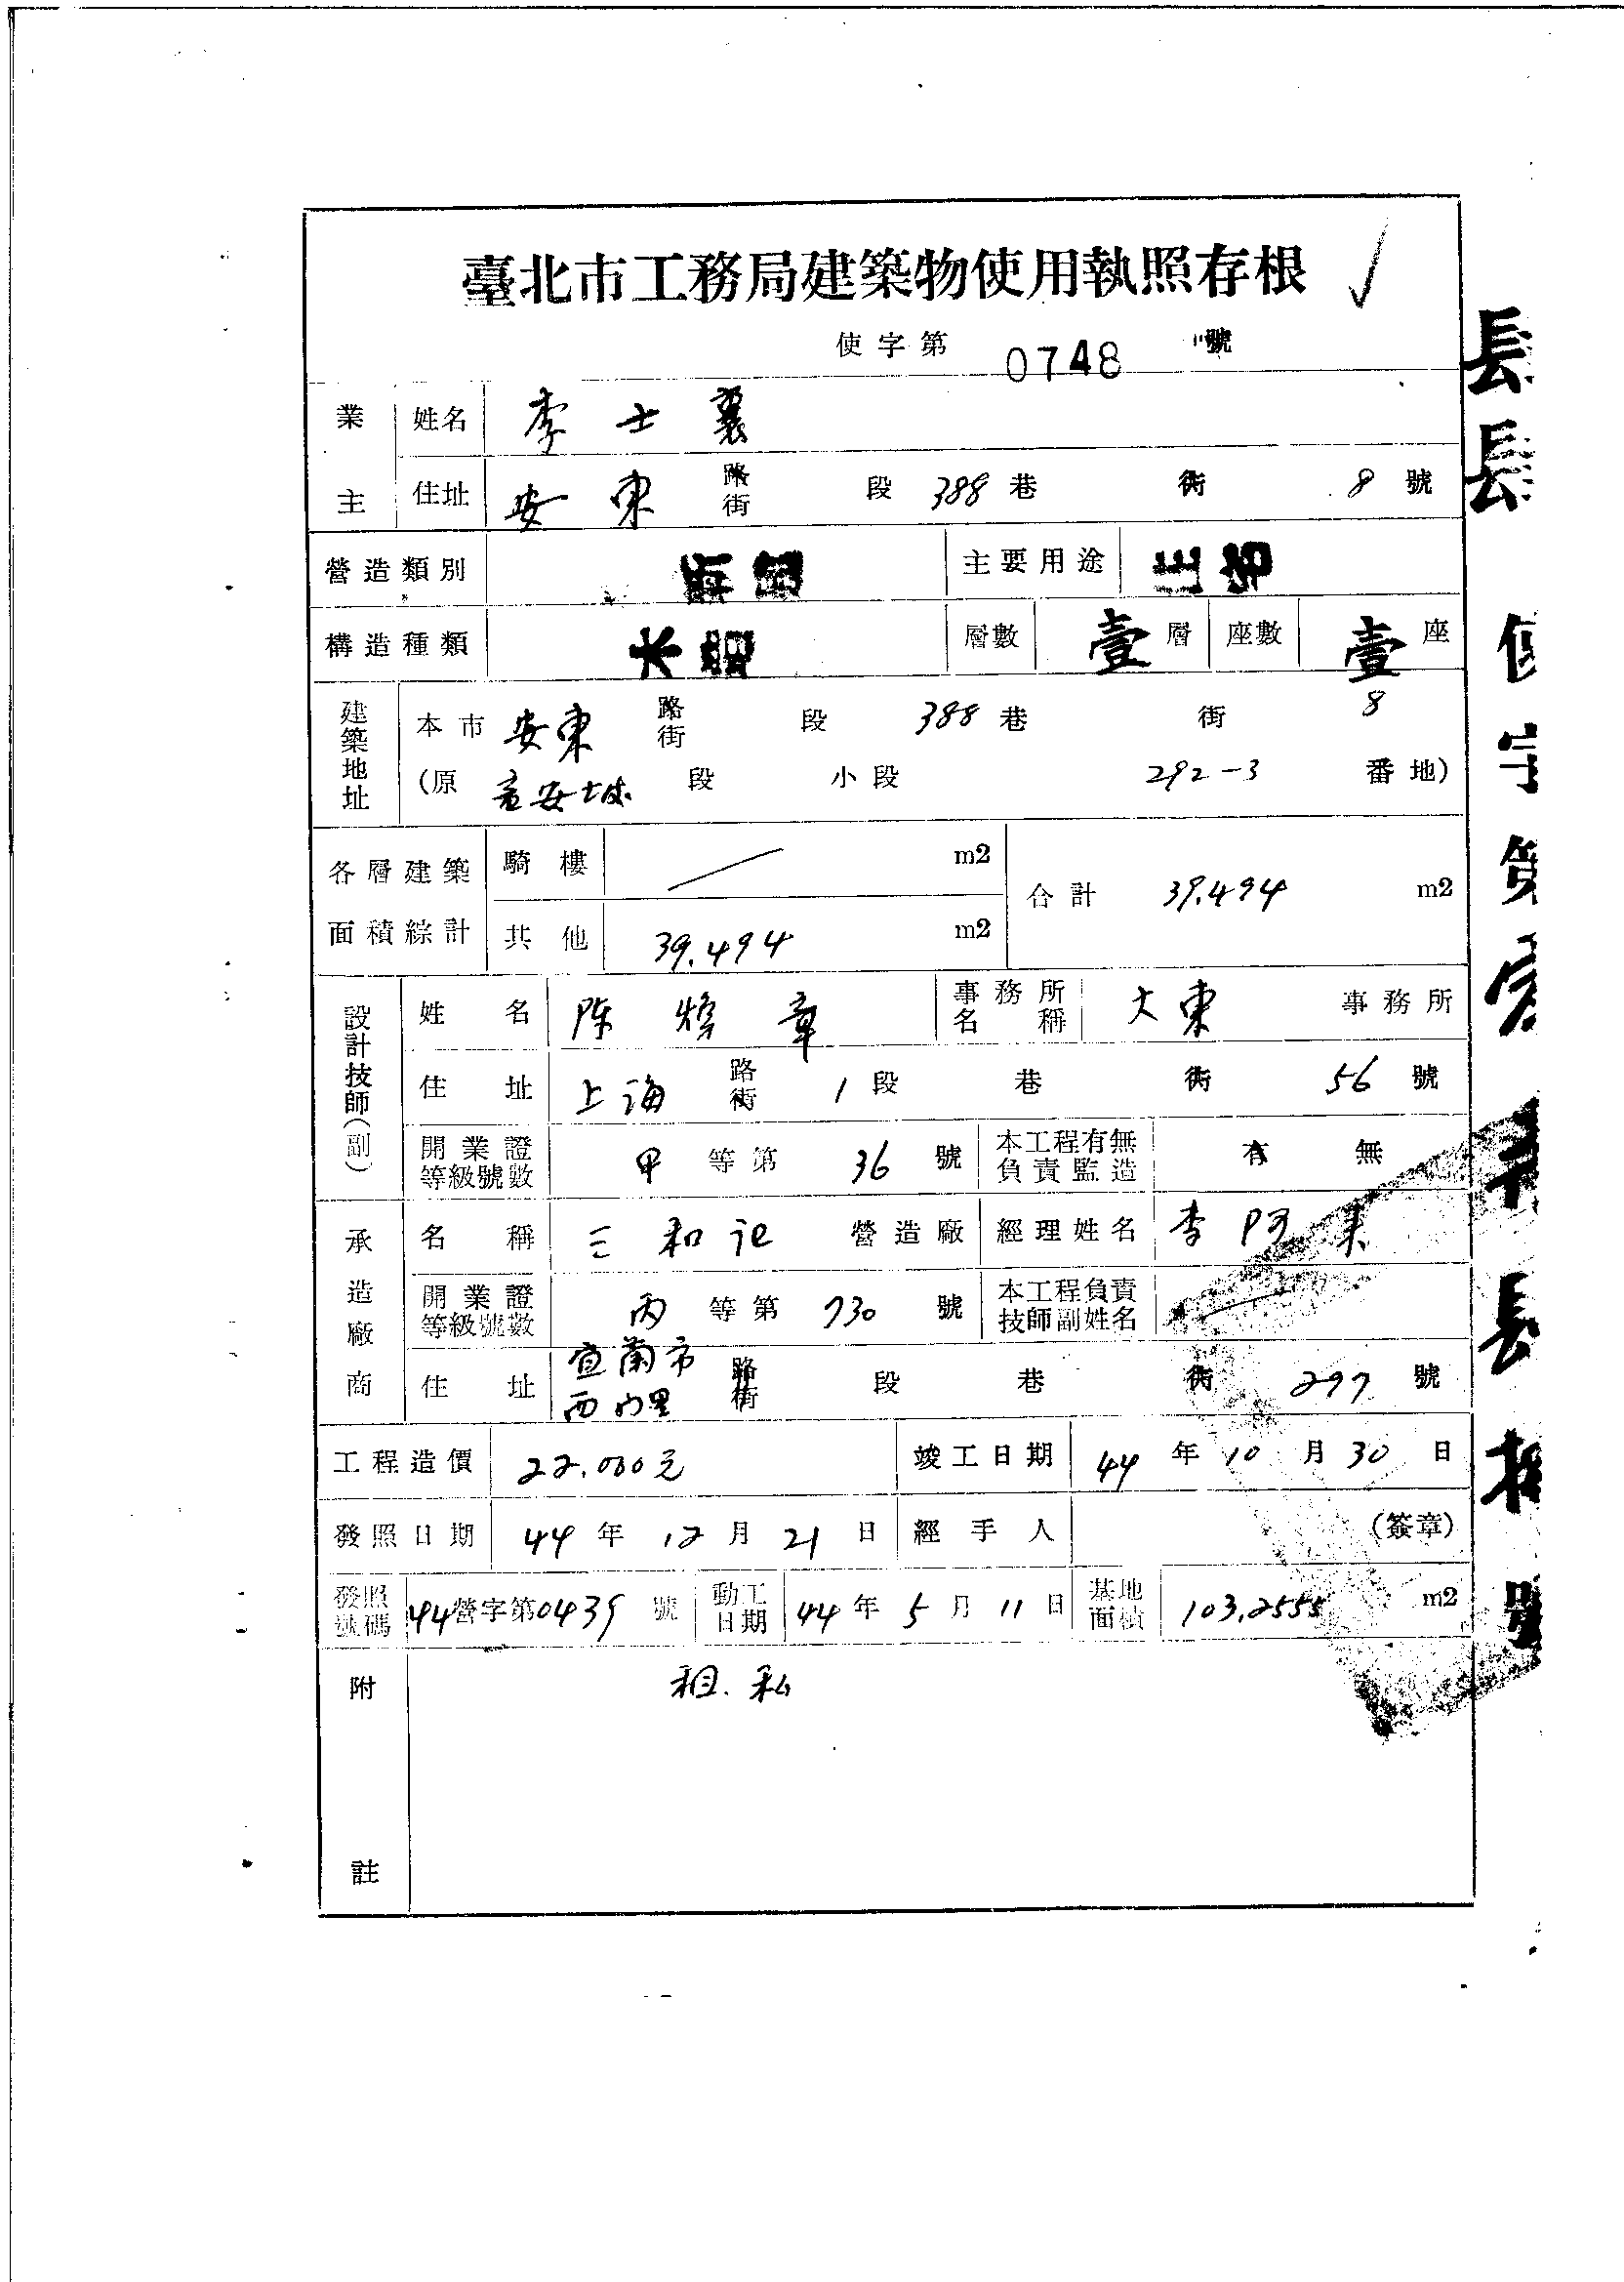 臺北市工務局建築物使用執照存根
使字第 0748 號
業主 姓名 李士襄
住址 安東 路街 段 388 巷 衖 8 號
營造類別 主要用途
構造種類 層數 壹 層 座數 壹 座
建築地址 本市 安東 路街 段 388 巷 街 8
(原 段 小段 292-3 番地)
各層建築面積綜計 騎樓 m2 合計 39.494 m2
共他 39.494 m2
設計技師(副) 姓名 陈 章 事務所名稱 大東 事務所
住址 上海 路街 1 段 巷 衖 56 號
開業證等級號數 甲 等第 36 號 本工程有無負責監造 有 無
承造廠商 名稱 三和记 營造廠 經理姓名 李阿
開業證等級號數 丙 等第 730 號 本工程負責技師副姓名
住址 宜蘭市西 里 路街 段 巷 衖 297 號
工程造價 22,000元 竣工日期 44 年 10 月 30 日
發照日期 44 年 12 月 21 日 經手人 (簽章)
發照號碼 44營字第0439 號 動工日期 44 年 5 月 11 日 基地面積 103.2555 m2
附註 租.私
長
長
使
字
第
長
號